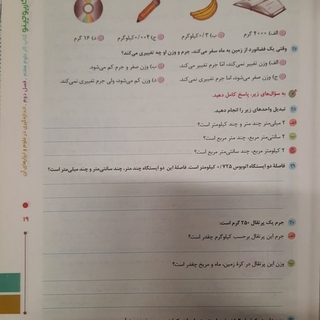 الف) ۴۰۰۰ گرم ب) ۰/۳ کیلوگرم ج) ۰/۰۰۴ کیلوگرم د) ۱۶ گرم
وقتی یک فضانورد از زمین به ماه سفر می‌کند، جرم و وزن او چه تغییری می‌کند؟
الف) وزن تغییر نمی‌کند، اما جرم کم می‌شود. ب) وزن صفر و جرم کم می‌شود.
ج) وزن صفر می‌شود، اما جرم تغییری نمی‌کند. د) وزن کم می‌شود، ولی جرم تغییری نمی‌کند.
به سؤال‌های زیر، پاسخ کامل دهید.
تبدیل واحدهای زیر را انجام دهید.
۳ میلی‌متر چند متر و چند کیلومتر است؟
۲ سانتی‌متر مربع، چند متر مربع است؟
۳ کیلومتر مربع، چند متر مربع است؟
فاصلهٔ دو ایستگاه اتوبوس ۰/۷۲۵ کیلومتر است. فاصلهٔ این دو ایستگاه چند متر، چند سانتی‌متر و چند میلی‌متر است؟
جرم یک پرتقال ۲۵۰ گرم است:
جرم این پرتقال برحسب کیلوگرم چقدر است؟
وزن این پرتقال در کرهٔ زمین، ماه و مریخ چقدر است؟
فصل دوم
۲۹